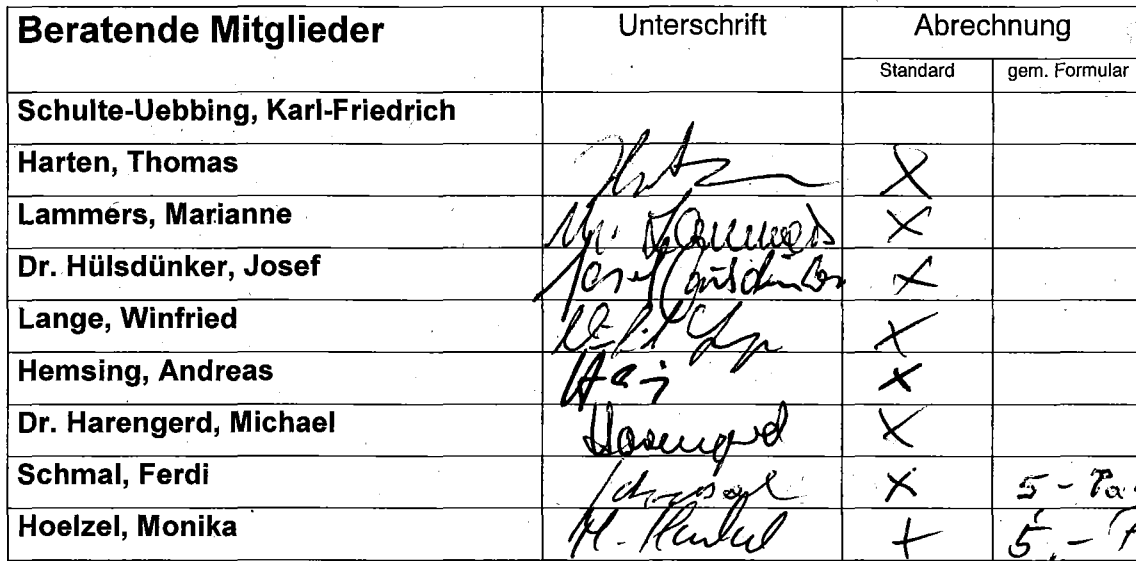 Beratende Mitglieder Unterschrift Abrechnung
Standard gem. Formular
Schulte-Uebbing, Karl-Friedrich
Harten, Thomas X
Lammers, Marianne M. Lammers X
Dr. Hülsdünker, Josef Josef Hülsdünker X
Lange, Winfried X
Hemsing, Andreas X
Dr. Harengerd, Michael Harengerd X
Schmal, Ferdi Schmal X 5,-
Hoelzel, Monika M. X 5,-